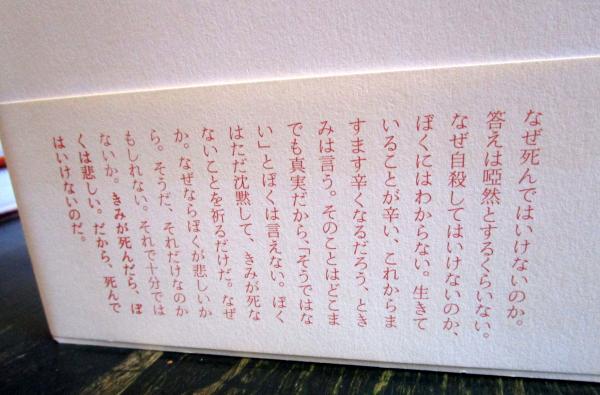 なぜ死んではいけないのか。
答えは啞然とするくらいない。
なぜ自殺してはいけないのか、
ぼくにはわからない。生きて
いることが辛い、これからま
すます辛くなるだろう、とき
みは言う。そのことはどこま
でも真実だから、「そうではな
い」とぼくは言えない。ぼく
はただ沈黙して、きみが死な
ないことを祈るだけだ。なぜ
か。なぜならぼくが悲しいか
ら。そうだ、それだけなのか
もしれない。それで十分では
ないか。きみが死んだら、ぼ
くは悲しい。だから、死んで
はいけないのだ。